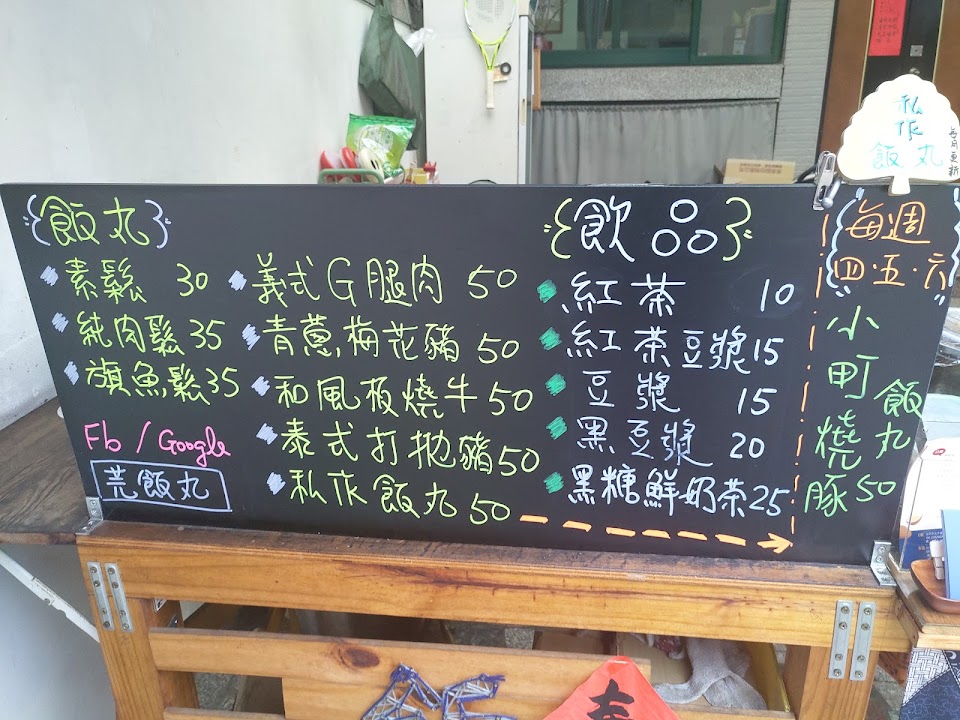 飯丸
素鬆 30
純肉鬆 35
旗魚鬆 35
Fb / Google
荒飯丸
義式G腿肉 50
青蔥梅花豬 50
和風板燒牛 50
泰式打拋豬 50
私作飯丸 50
飲品
紅茶 10
紅茶豆漿 15
豆漿 15
黑豆漿 20
黑糖鮮奶茶 25
私作飯丸
每月更新
每週
四·五·六
小町燒豚
飯丸 50